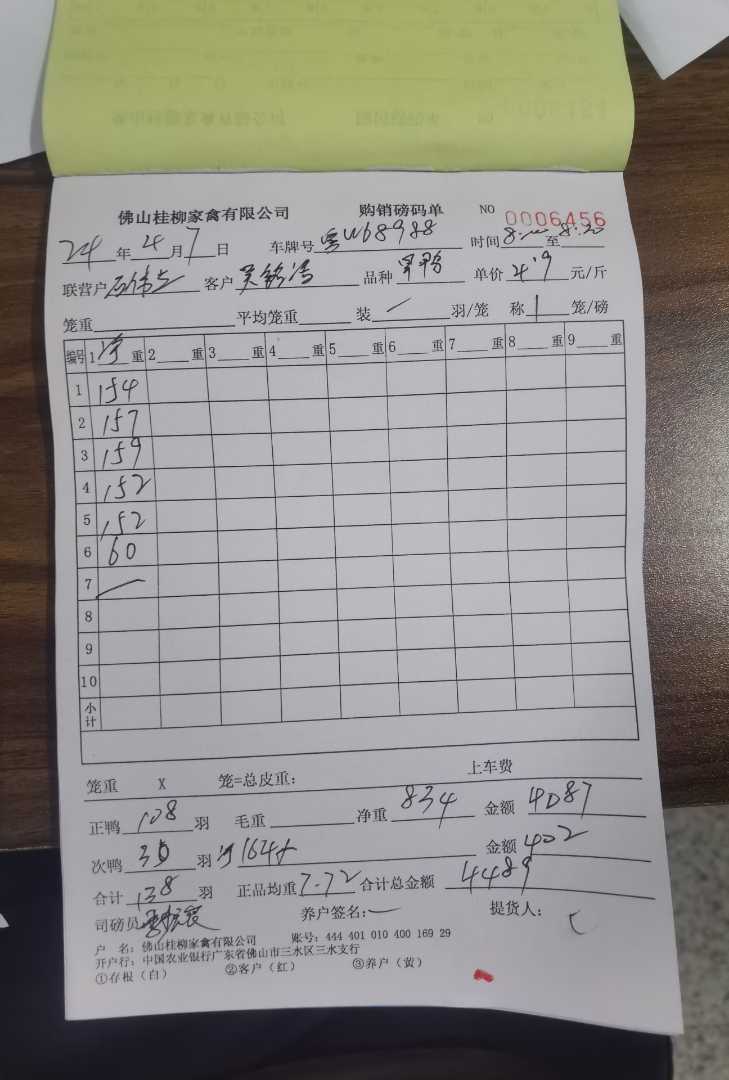 佛山桂柳家禽有限公司 购销磅码单 NO 0006456
24年4月7日 车牌号粤W68988 时间8: 至8:20
联营户 客户吴铭 品种 单价4.9元/斤
笼重 平均笼重 装 羽/笼 称1笼/磅
编号 1净重 2重 3重 4重 5重 6重 7重 8重 9重
1 154
2 157
3 159
4 152
5 152
6 60
7 —
8
9
10
小计
笼重 X 笼=总皮重: 上车费
正鸭108羽 毛重 净重834 金额4087
次鸭30羽 净164斤 金额402
合计138羽 正品均重7.72 合计总金额4489
司磅员 养户签名:— 提货人:
户 名: 佛山桂柳家禽有限公司 账号: 444 401 010 400 169 29
开户行: 中国农业银行广东省佛山市三水区三水支行
①存根(白) ②客户(红) ③养户(黄)